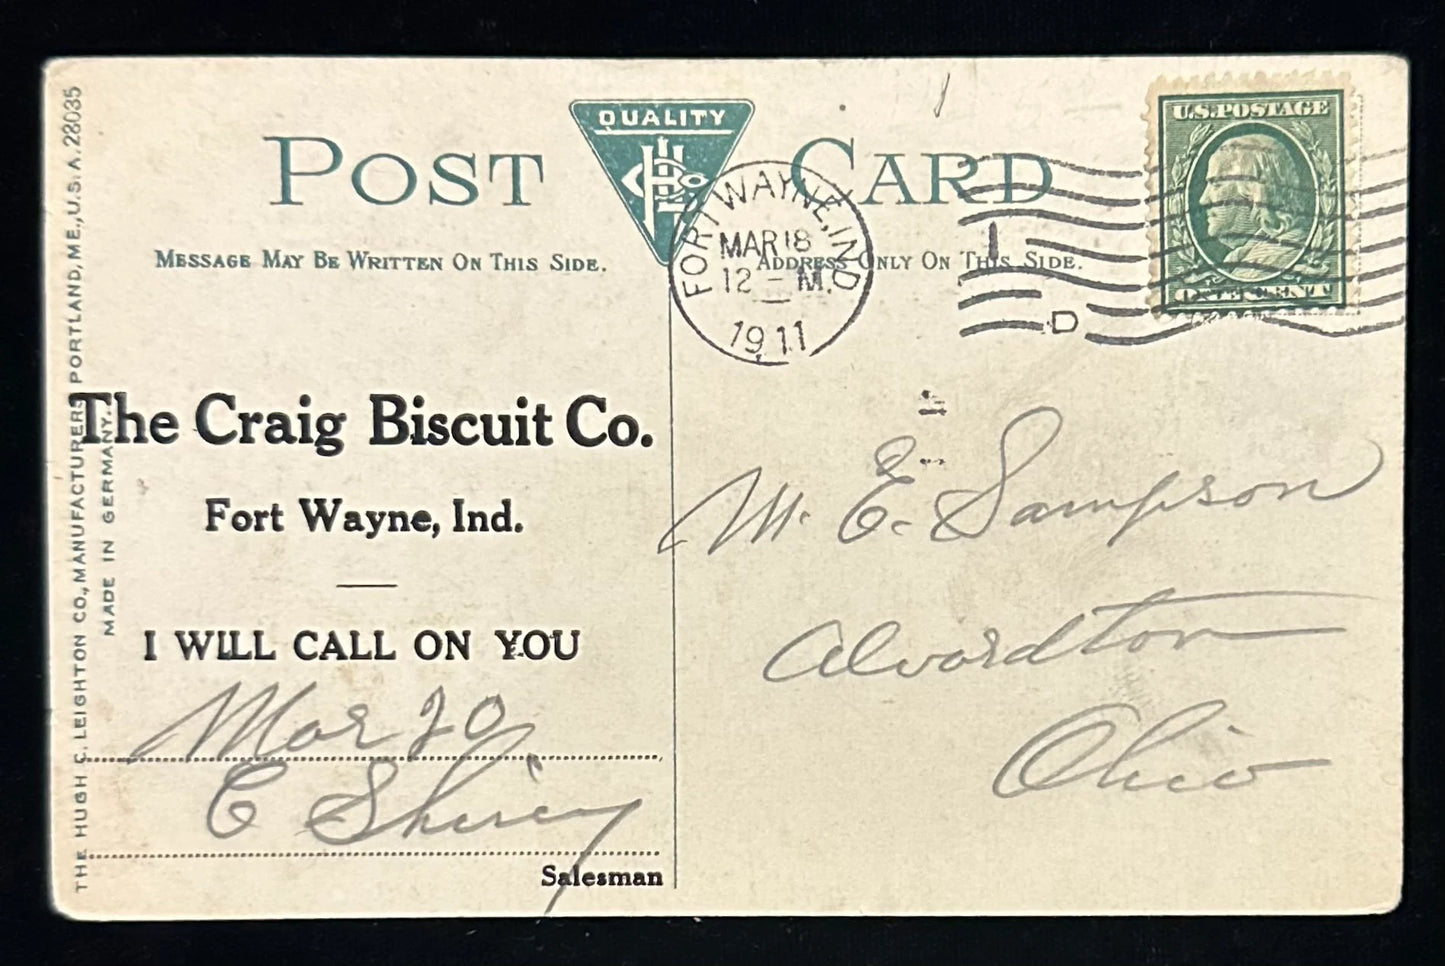 POST CARD
QUALITY
MESSAGE MAY BE WRITTEN ON THIS SIDE.
ADDRESS ONLY ON THIS SIDE.
FORT WAYNE, IND
MAR 18
12 - M.
1911
D
U.S. POSTAGE
ONE CENT
THE HUGH C. LEIGHTON CO., MANUFACTURERS PORTLAND, ME., U.S.A. 28035
MADE IN GERMANY.
The Craig Biscuit Co.
Fort Wayne, Ind.
I WILL CALL ON YOU
Mar 20
C Shirey
Salesman
M. E. Sampson
Alvordton
Ohio